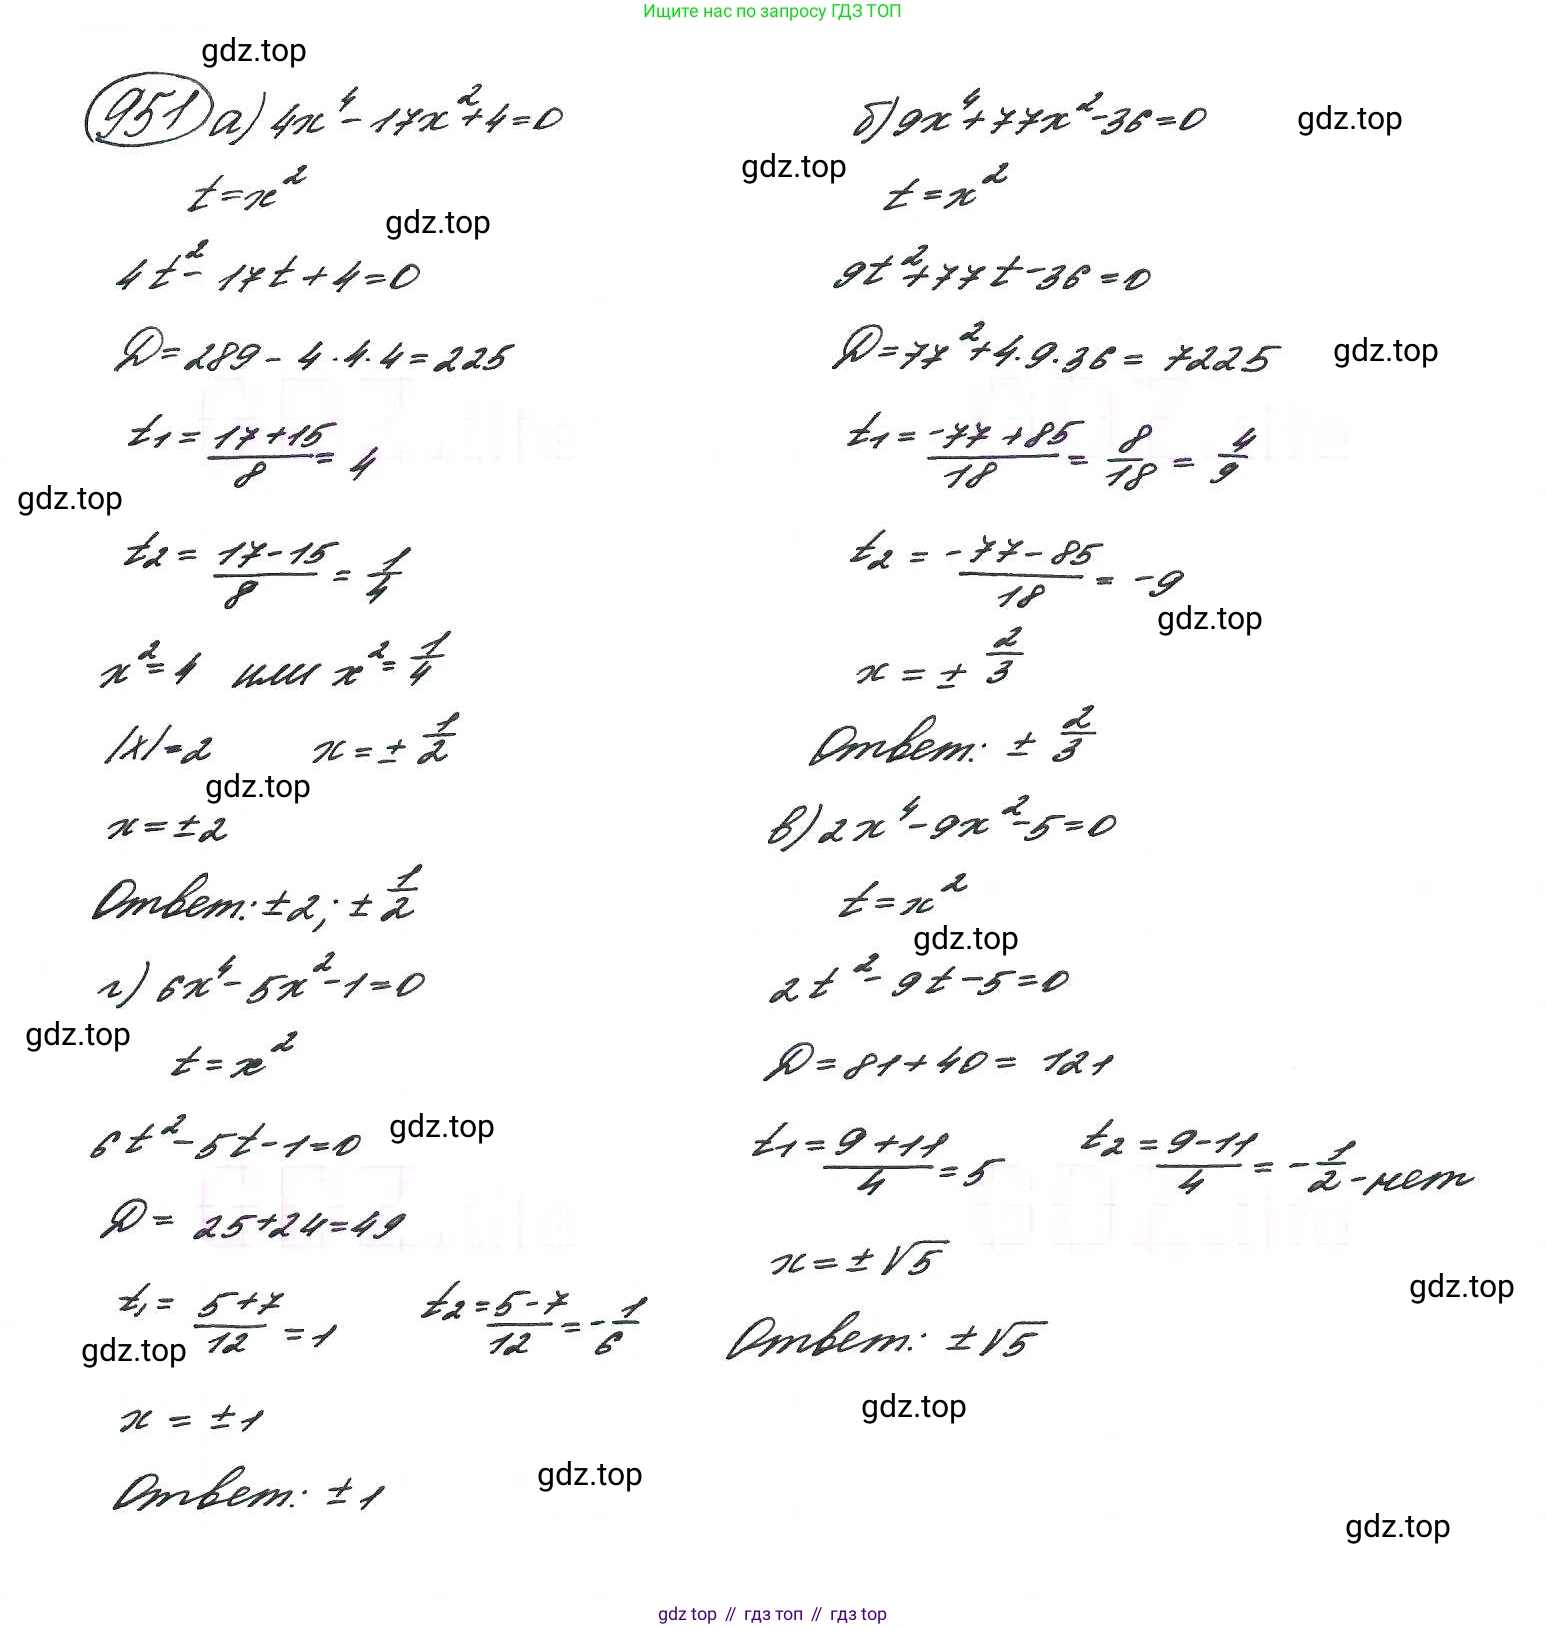 Ищите нас по запросу ГДЗ ТОП
gdz.top
951 а) 4x⁴ - 17x² + 4 = 0
t = x²
gdz.top
4t² - 17t + 4 = 0
D = 289 - 4·4·4 = 225
t₁ = (17+15)/8 = 4
gdz.top
t₂ = (17-15)/8 = 1/4
x² = 4 или x² = 1/4
|x| = 2 x = ± 1/2
gdz.top
x = ±2
Ответ: ±2; ± 1/2
г) 6x⁴ - 5x² - 1 = 0
gdz.top
t = x²
6t² - 5t - 1 = 0
gdz.top
D = 25 + 24 = 49
t₁ = (5+7)/12 = 1 t₂ = (5-7)/12 = -1/6
gdz.top
x = ±1
gdz.top
Ответ: ±1
б) 9x⁴ + 77x² - 36 = 0
gdz.top
gdz.top
t = x²
9t² + 77t - 36 = 0
D = 77² + 4·9·36 = 7225
gdz.top
t₁ = (-77+85)/18 = 8/18 = 4/9
t₂ = (-77-85)/18 = -9
gdz.top
x = ± 2/3
Ответ: ± 2/3
в) 2x⁴ - 9x² - 5 = 0
t = x²
gdz.top
2t² - 9t - 5 = 0
D = 81 + 40 = 121
t₁ = (9+11)/4 = 5 t₂ = (9-11)/4 = -1/2 - нет
x = ±√5
gdz.top
Ответ: ±√5
gdz.top
gdz.top
gdz top // гдз топ // гдз top